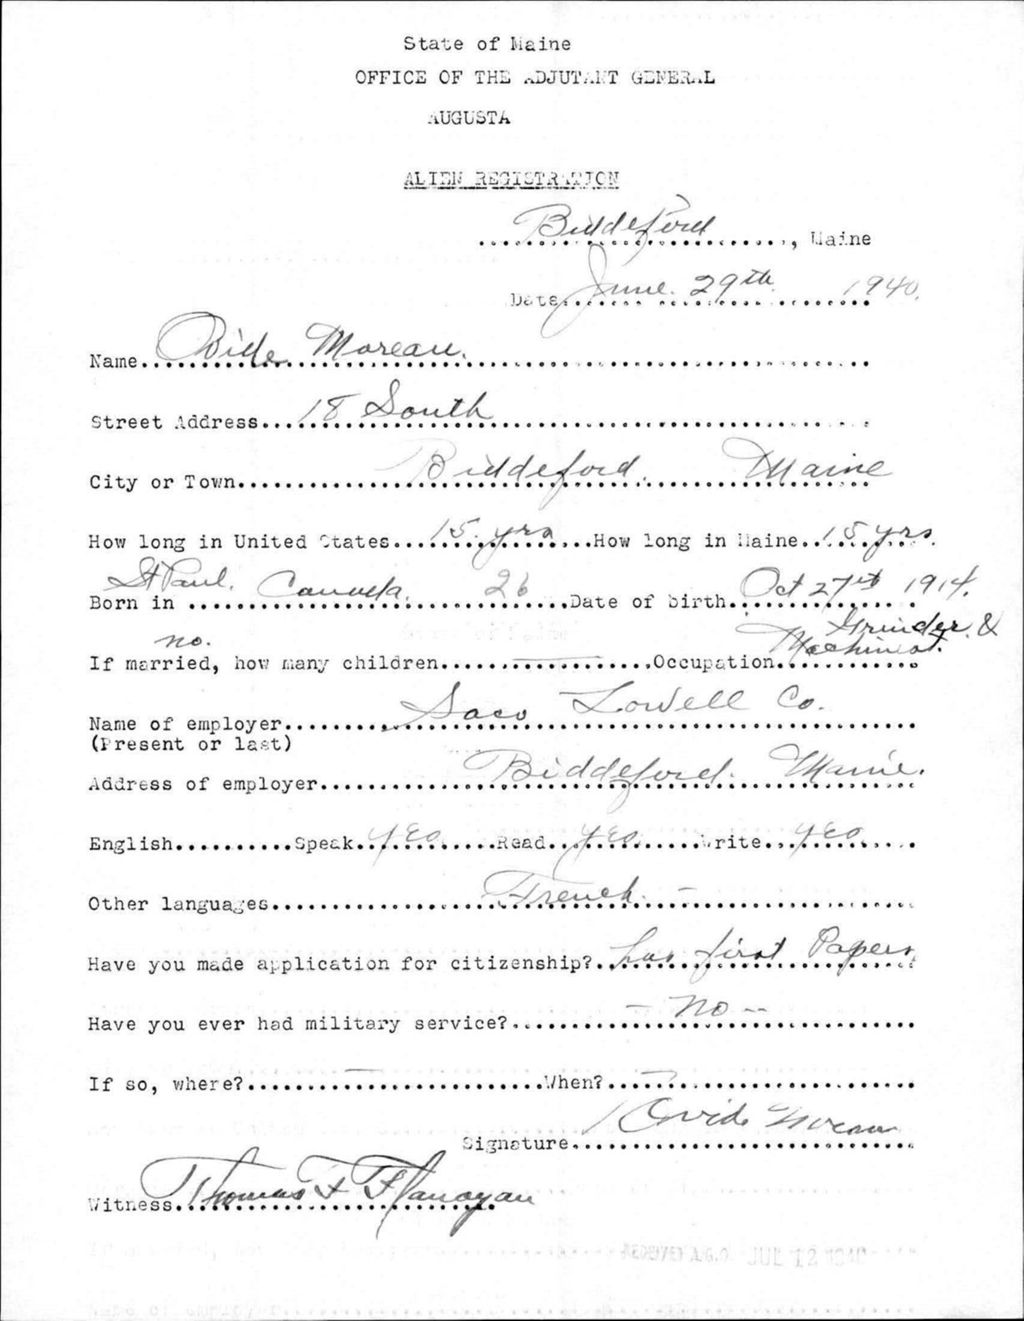 State of Maine
OFFICE OF THE ADJUTANT GENERAL
AUGUSTA
ALIEN REGISTRATION
Biddeford, Maine
Date June 29th 1940.
Name Ovide Moreau.
Street Address 18 South
City or Town Biddeford. Maine
How long in United States 15 yrs How long in Maine 15 yrs.
Born in St Paul. Canada. 26 Date of birth Oct 27th 1914.
no.
If married, how many children — Occupation Grinder & Machinist.
Name of employer Saco Lowell Co.
(Present or last)
Address of employer Biddeford. Maine.
English Speak yes Read yes Write yes
Other languages French. —
Have you made application for citizenship? has first Papers
Have you ever had military service? — no —
If so, where? — When? —
Signature Ovide Moreau
Witness Thomas F Flanagan
RECEIVED A.G.O. JUL 12 1940